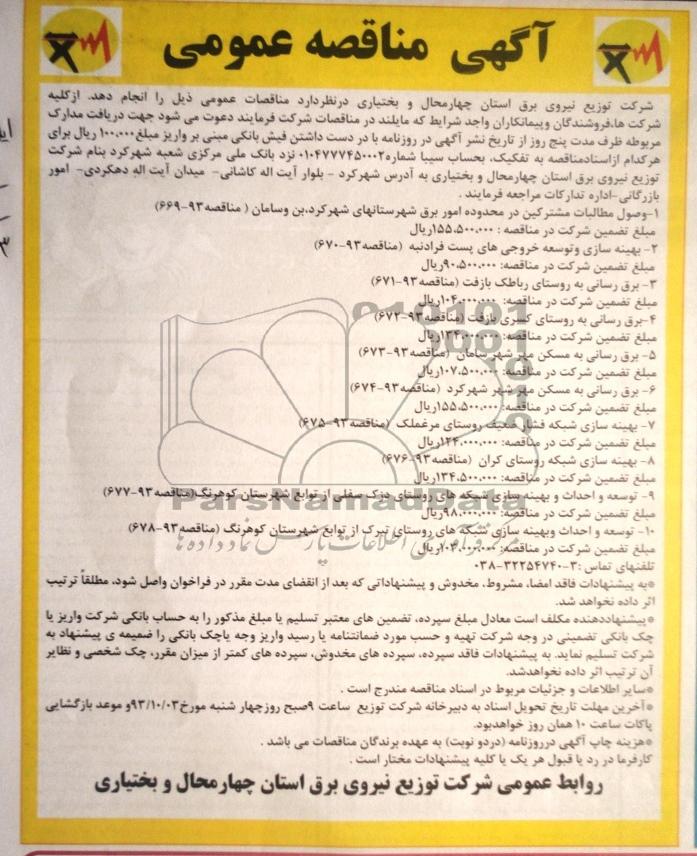 آگهی مناقصه عمومی
شرکت توزیع نیروی برق استان چهارمحال و بختیاری درنظردارد مناقصات عمومی ذیل را انجام دهد. ازکلیه
شرکت ها،فروشندگان وپیمانکاران واجد شرایط که مایلند در مناقصات شرکت فرمایند دعوت می شود جهت دریافت مدارک
مربوطه ظرف مدت پنج روز از تاریخ نشر آگهی در روزنامه با در دست داشتن فیش بانکی مبنی بر واریز مبلغ ۱۰۰،۰۰۰ ریال برای
هرکدام ازاسنادمناقصه به تفکیک، بحساب سیبا شماره۰۱۰۴۷۷۷۴۵۰۰۰۲ نزد بانک ملی مرکزی شعبه شهرکرد بنام شرکت
توزیع نیروی برق استان چهارمحال و بختیاری به آدرس شهرکرد - بلوار آیت اله کاشانی- میدان آیت اله دهکردی- امور
بازرگانی-اداره تدارکات مراجعه فرمایند .
۱-وصول مطالبات مشترکین در محدوده امور برق شهرستانهای شهرکرد،بن وسامان ( مناقصه۹۳-۶۶۹)
مبلغ تضمین شرکت در مناقصه : ۱۵۵،۵۰۰،۰۰۰ریال
۲- بهینه سازی وتوسعه خروجی های پست فرادنبه (مناقصه۹۳-۶۷۰)
مبلغ تضمین شرکت در مناقصه: ۹۰،۵۰۰،۰۰۰ریال
۳- برق رسانی به روستای رباطک بازفت (مناقصه۹۳-۶۷۱)
مبلغ تضمین شرکت در مناقصه: ۱۰۴،۰۰۰،۰۰۰ریال
۴-برق رسانی به روستای کسری بازفت (مناقصه۹۳-۶۷۲)
مبلغ تضمین شرکت در مناقصه: ۱۳۴،۰۰۰،۰۰۰ریال
۵- برق رسانی به مسکن مهر شهر سامان (مناقصه۹۳-۶۷۳)
مبلغ تضمین شرکت در مناقصه: ۱۰۷،۵۰۰،۰۰۰ریال
۶- برق رسانی به مسکن مهر شهر شهرکرد (مناقصه۹۳-۶۷۴)
مبلغ تضمین شرکت در مناقصه: ۱۵۵،۵۰۰،۰۰۰ریال
۷- بهینه سازی شبکه فشار ضعیف روستای مرغملک (مناقصه۹۳-۶۷۵)
مبلغ تضمین شرکت در مناقصه: ۱۲۴،۰۰۰،۰۰۰ریال
۸- بهینه سازی شبکه روستای کران (مناقصه۹۳-۶۷۶)
مبلغ تضمین شرکت در مناقصه: ۱۳۴،۵۰۰،۰۰۰ریال
۹- توسعه و احداث و بهینه سازی شبکه های روستای دزک سفلی از توابع شهرستان کوهرنگ(مناقصه۹۳-۶۷۷)
مبلغ تضمین شرکت در مناقصه: ۹۸،۰۰۰،۰۰۰ریال
ParsNamadData
۱۰- توسعه و احداث وبهینه سازی شبکه های روستای تبرک از توابع شهرستان کوهرنگ (مناقصه۹۳-۶۷۸)
مبلغ تضمین شرکت در مناقصه: ۱۰۳،۰۰۰،۰۰۰ریال
تلفنهای تماس :۳-۳۲۲۵۴۷۴۰-۰۳۸
*به پیشنهادات فاقد امضا، مشروط، مخدوش و پیشنهاداتی که بعد از انقضای مدت مقرر در فراخوان واصل شود، مطلقاً ترتیب
اثر داده نخواهد شد.
*پیشنهاددهنده مکلف است معادل مبلغ سپرده، تضمین های معتبر تسلیم یا مبلغ مذکور را به حساب بانکی شرکت واریز یا
چک بانکی تضمینی در وجه شرکت تهیه و حسب مورد ضمانتنامه یا رسید واریز وجه یاچک بانکی را ضمیمه ی پیشنهاد به
شرکت تسلیم نماید. به پیشنهادات فاقد سپرده، سپرده های مخدوش، سپرده های کمتر از میزان مقرر، چک شخصی و نظایر
آن ترتیب اثر داده نخواهدشد.
*سایر اطلاعات و جزئیات مربوط در اسناد مناقصه مندرج است .
*آخرین مهلت تاریخ تحویل اسناد به دبیرخانه شرکت توزیع ساعت ۹صبح روزچهار شنبه مورخ۹۳/۱۰/۰۳و موعد بازگشایی
پاکات ساعت ۱۰ همان روز خواهدبود.
*هزینه چاپ آگهی درروزنامه (دردو نوبت) به عهده برندگان مناقصات می باشد .
کارفرما در رد یا قبول هر یک یا کلیه پیشنهادات مختار است .
روابط عمومی شرکت توزیع نیروی برق استان چهارمحال و بختیاری